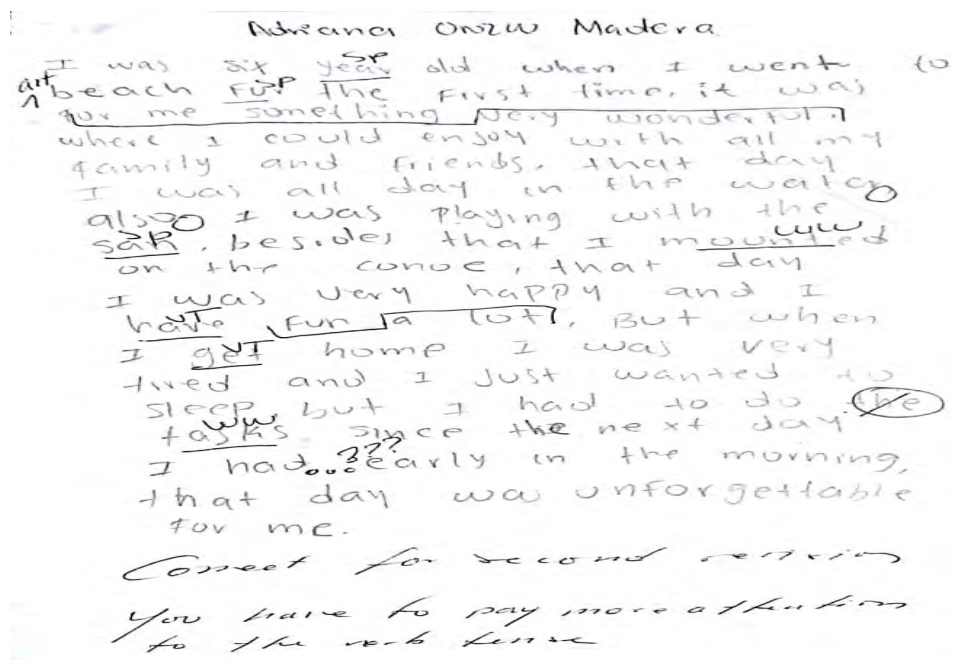 Adriana Onzw Madera
SP
I was six year old when I went to
art SP
beach Fu the First time, it was
for me something very wonderful.
where I could enjoy with all my
family and friends. that day
I was all day in the water
also I was Playing with the
SP ww
san, besides that I mounted
on the canoe, that day
I was very happy and I
VT
have Fun a lot, But when
VT
I get home I was very
tired and I Just wanted to
sleep, but I had to do the
ww
tasks since the next day
???
I had... early in the morning,
that day wa unforgettable
for me.
Correct for second revision
You have to pay more attention
to the verb tense